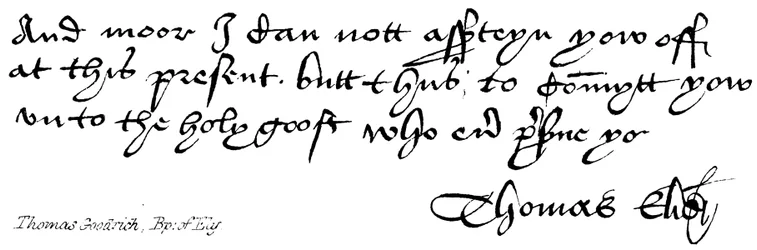 And moor I can nott assteyn yow off
at this present. butt thus to comytt yow
vnto the holy goost who eũ p̃sue yo
Thomas Elien
Thomas Goodrich, Bp: of Ely